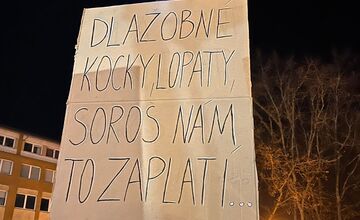 DLAŽOBNÉ
KOCKY, LOPATY,
SOROS NÁM
TO ZAPLATÍ...